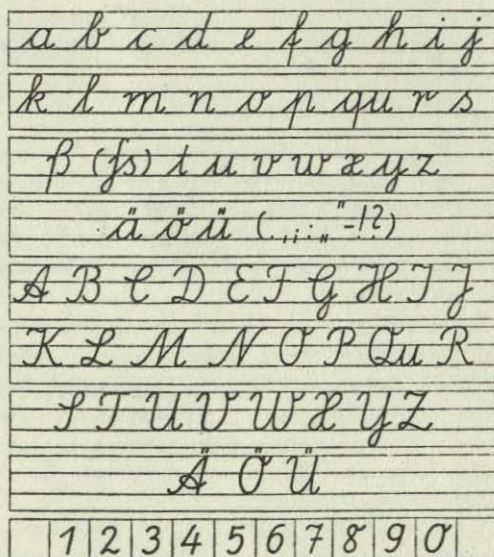 a b c d e f g h i j
k l m n o p qu r s
ß (ſs) t u v w x y z
ä ö ü (.,;:„"-!?)
A B C D E F G H I J
K L M N O P Qu R
S T U V W X Y Z
Ä Ö Ü
1 2 3 4 5 6 7 8 9 0